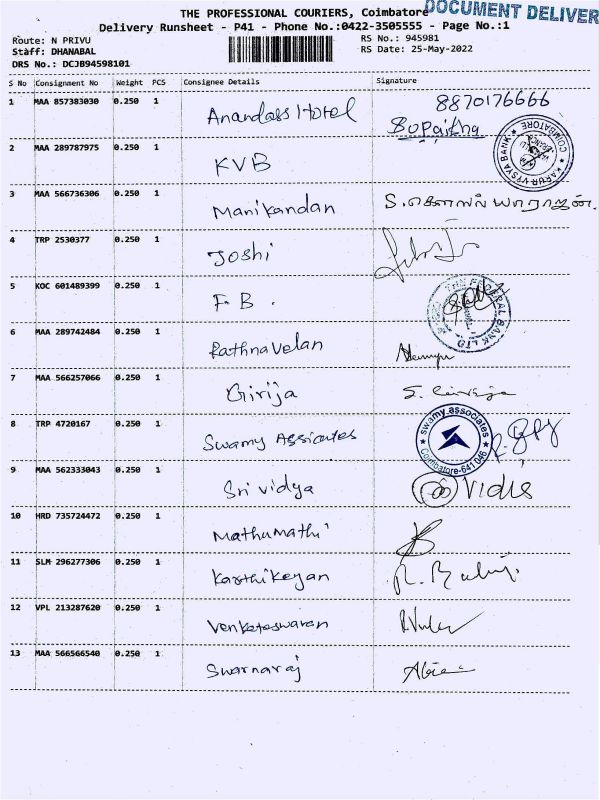 DOCUMENT DELIVER
THE PROFESSIONAL COURIERS, Coimbatore
Delivery Runsheet - P41 - Phone No.:0422-3505555 - Page No.:1
Route: N PRIVU RS No.: 945981
Staff: DHANABAL RS Date: 25-May-2022
DRS No.: DCJB94598101
S No Consignment No Weight PCS Consignee Details Signature
1 MAA 857383030 0.250 1 Anandass Hotel 8870176666
2 MAA 289787975 0.250 1 KVB
KARUR VYSYA BANK COIMBATORE
3 MAA 566736306 0.250 1 Manikandan
4 TRP 2530377 0.250 1 Joshi
5 KOC 601489399 0.250 1 F.B.
THE FEDERAL BANK LTD
6 MAA 289742484 0.250 1 Rathnavelan
7 MAA 566257066 0.250 1 Girija S. Girija
8 TRP 4720167 0.250 1 Swamy Assicates
swamy associates Coimbatore-641 046
9 MAA 562333043 0.250 1 Srividya
10 HRD 735724472 0.250 1 Mathumathi
11 SLM 296277306 0.250 1 Karthikeyan
12 VPL 213287620 0.250 1 Venketeswaran
13 MAA 566566540 0.250 1 Swarnaraj